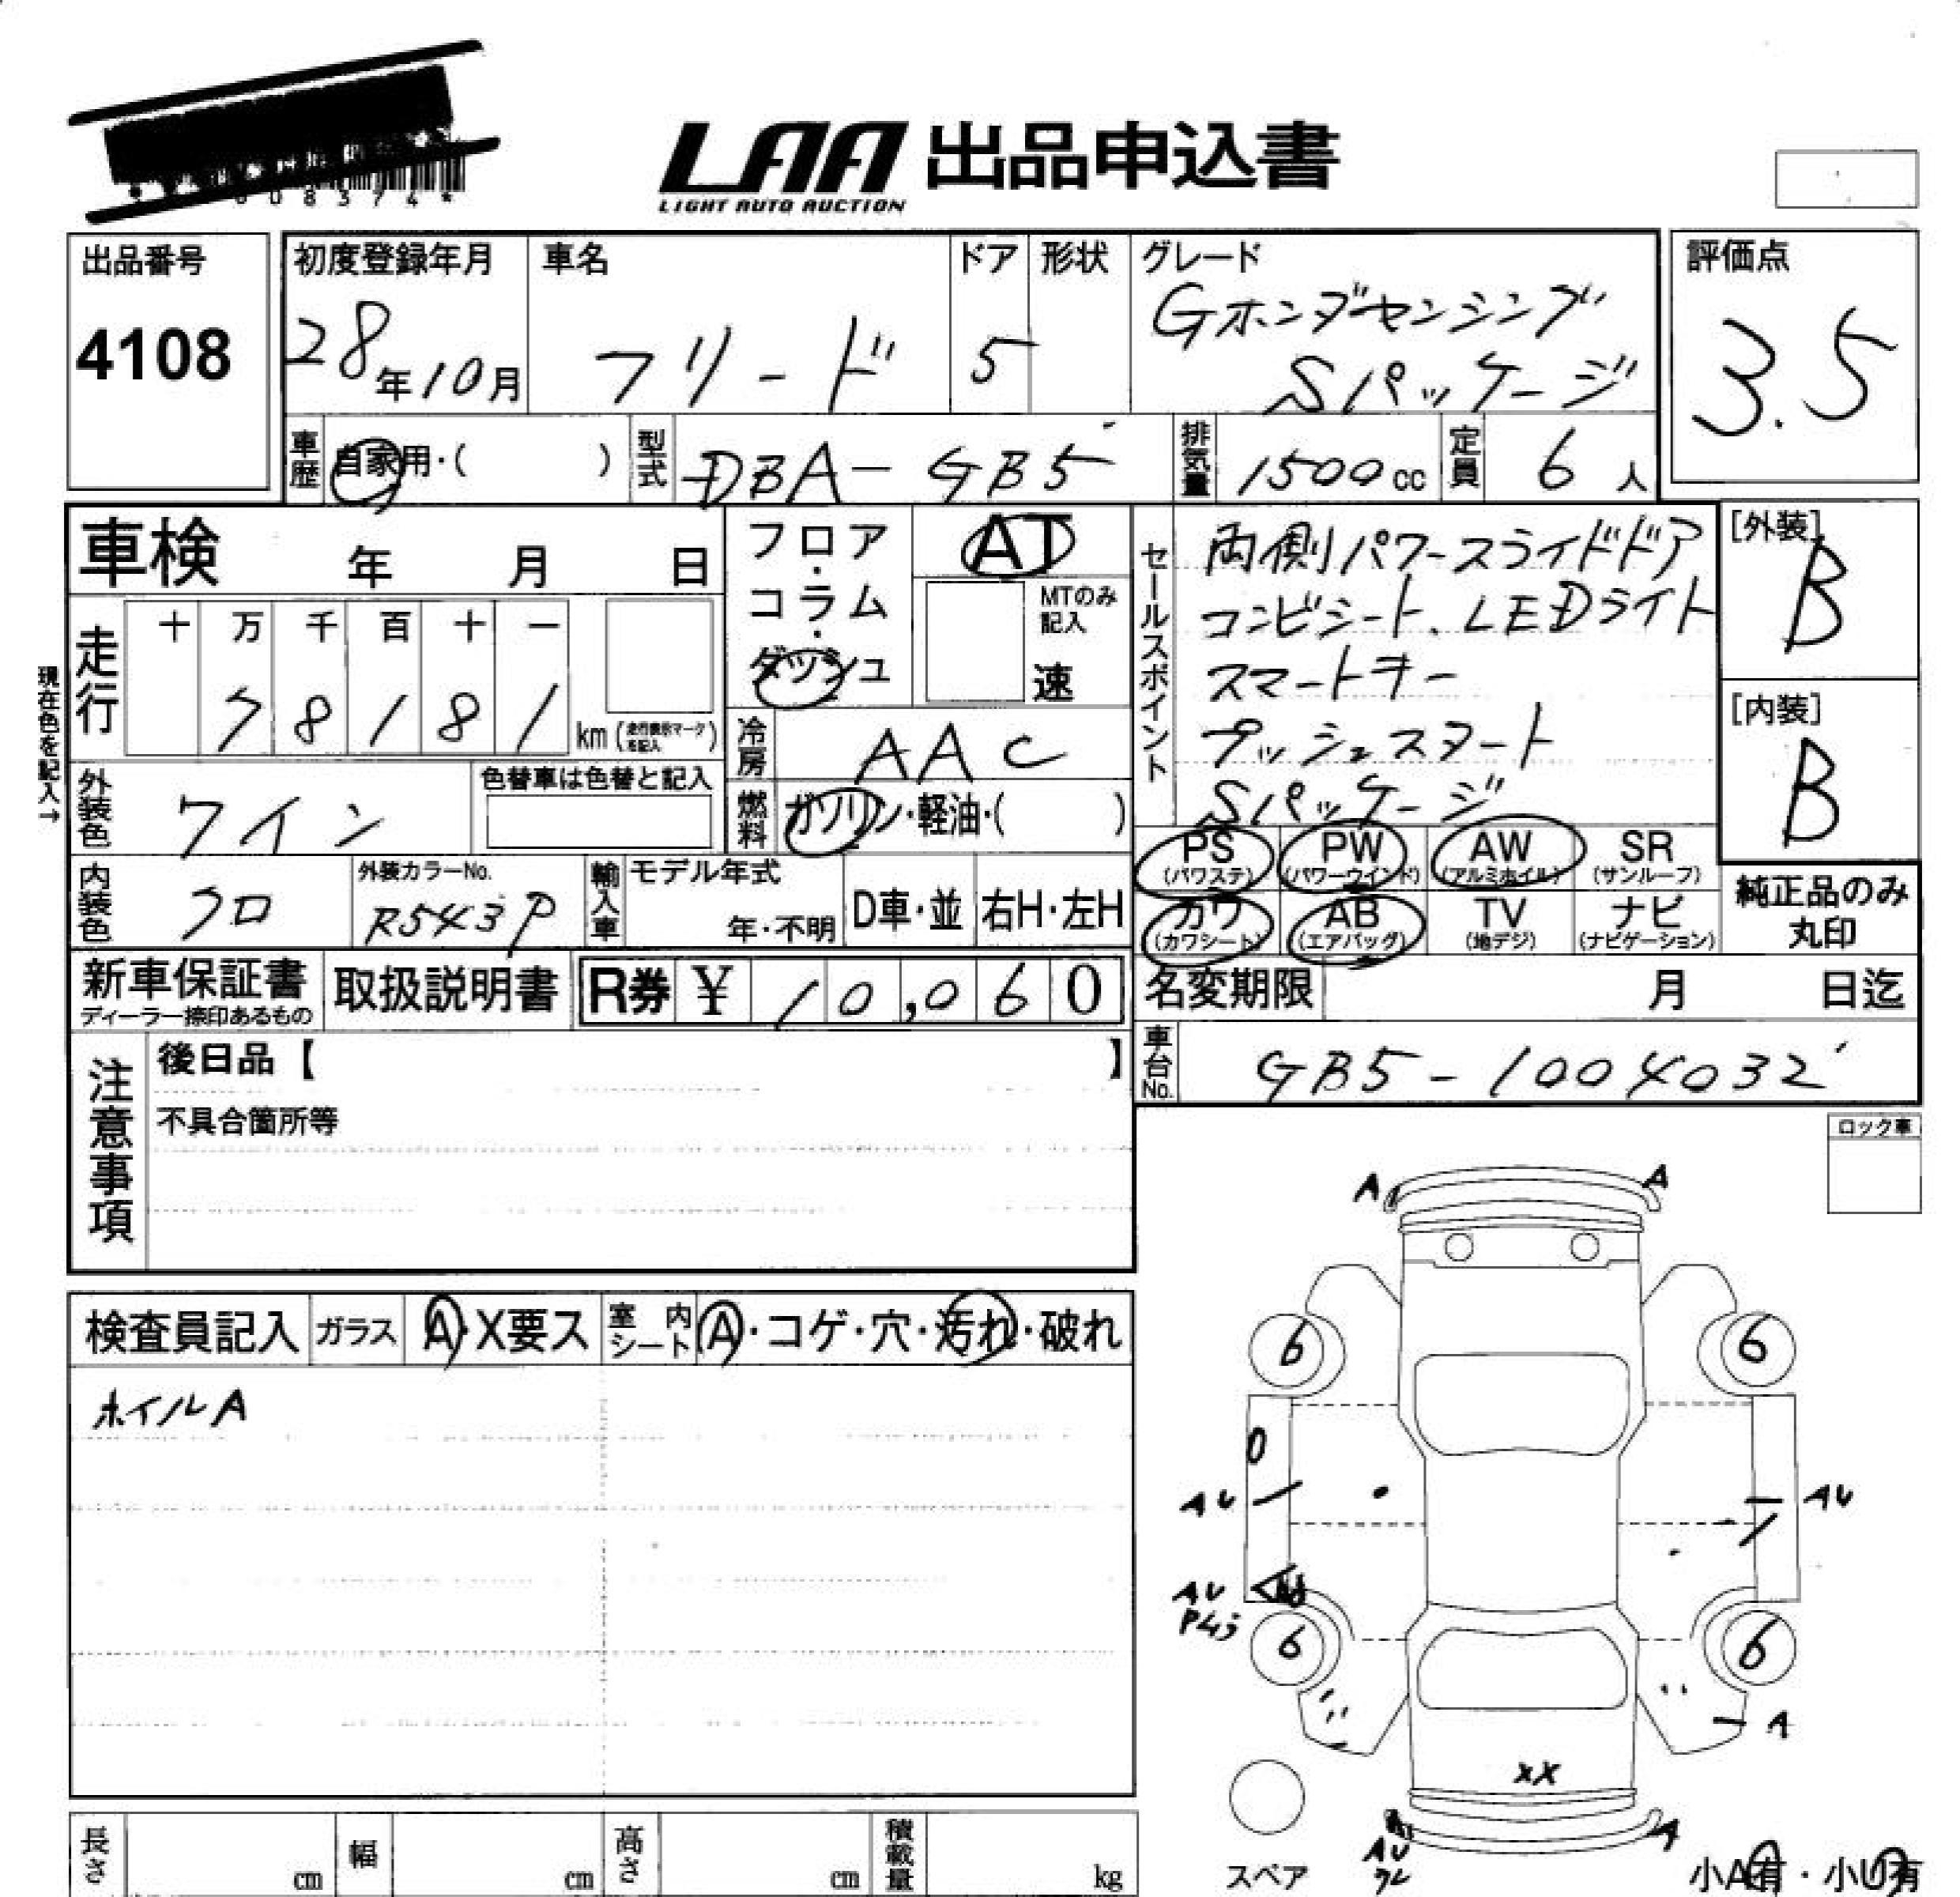 LAA 出品申込書
LIGHT AUTO AUCTION
出品番号
4108
初度登録年月
28年10月
車名
フリード
ドア
5
形状
グレード
Gホンダセンシング
Sパッケージ
評価点
3.5
車歴 自家用・( )
型式 DBA-GB5
排気量 1500cc
定員 6人
車検 年 月 日
フロア・コラム・ダッシュ
AT
MTのみ記入
速
セールスポイント
両側パワースライドドア
コンビシート、LEDライト
スマートキー
プッシュスタート
Sパッケージ
[外装]
B
[内装]
B
現在色を記入→
走行
十 万 千 百 十 一
7 8 1 8 1
km(走行表示マークを記入)
冷房 AAC
外装色 ワイン
色替車は色替と記入
燃料 ガソリン・軽油・( )
PS (パワステ)
PW (パワーウインド)
AW (アルミホイル)
SR (サンルーフ)
内装色 クロ
外装カラーNo.
R543P
輸入車
モデル年式
年・不明
D車・並
右H・左H
カワ (カワシート)
AB (エアバッグ)
TV (地デジ)
ナビ (ナビゲーション)
純正品のみ
丸印
新車保証書
ディーラー捺印あるもの
取扱説明書
R券 ¥ 10,060
名変期限 月 日迄
車台No. GB5-1004032
注意事項
後日品【 】
不具合箇所等
ロック車
検査員記入
ガラス A・X要ス
室内シート A・コゲ・穴・汚れ・破れ
ホイルA
A A
6 6
AU AU
AU
6 6
A
XX
AU
A
スペア
小A有・小U有
長さ cm
幅 cm
高さ cm
積載量 kg